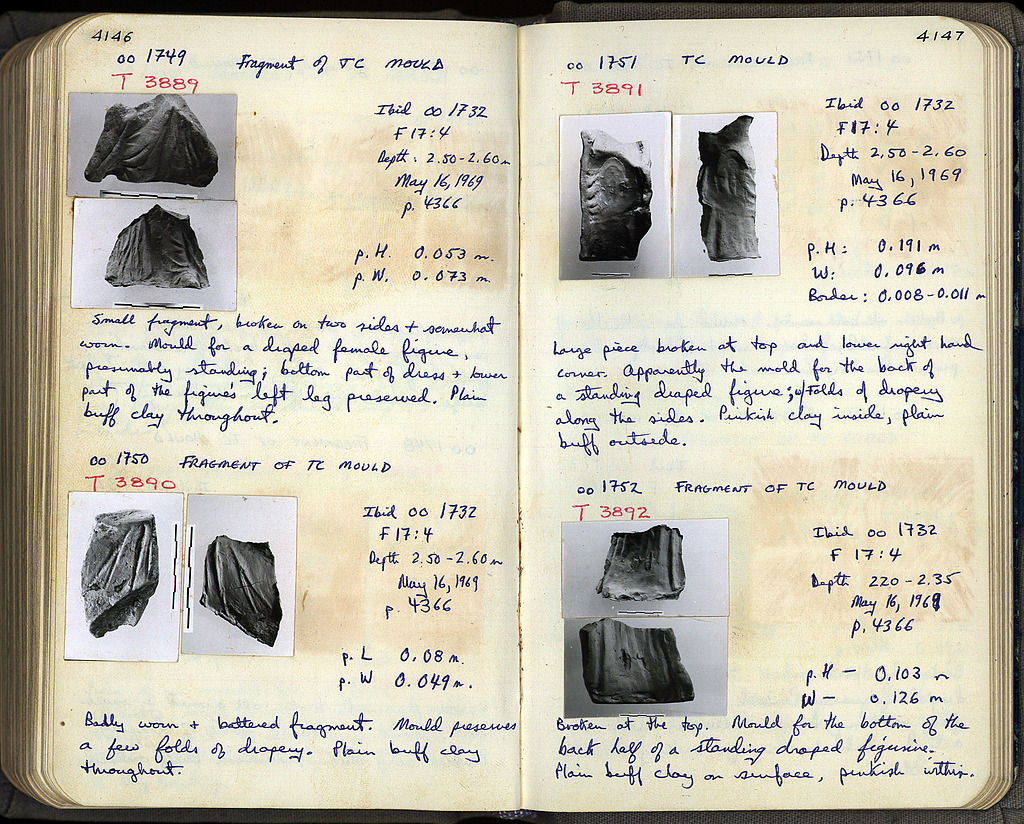 4146
oo 1749 Fragment of TC MOULD
T 3889
Ibid oo 1732
F17:4
Depth: 2.50-2.60m
May 16, 1969
p. 4366
p. H. 0.053 m.
p. W. 0.073 m.
Small fragment, broken on two sides + somewhat
worn. Mould for a draped female figure,
presumably standing; bottom part of dress + lower
part of the figure's left leg preserved. Plain
buff clay throughout.
oo 1750 FRAGMENT OF TC MOULD
T 3890
Ibid oo 1732
F17:4
Depth 2.50-2.60m
May 16, 1969
p. 4366
p. L 0.08 m.
p. W 0.049 m.
Badly worn + battered fragment. Mould preserves
a few folds of drapery. Plain buff clay
throughout.
4147
oo 1751 TC MOULD
T 3891
Ibid oo 1732
F17:4
Depth 2.50-2.60
May 16, 1969
p. 4366
p. H: 0.191 m
W: 0.096 m
Border: 0.008-0.011 m
Large piece broken at top and lower right hand
corner. Apparently the mold for the back of
a standing draped figure; w/ folds of drapery
along the sides. Pinkish clay inside, plain
buff outside.
oo 1752 FRAGMENT OF TC MOULD
T 3892
Ibid oo 1732
F 17:4
Depth 220-2.35
May 16, 1969
p. 4366
p. H — 0.103 m
W — 0.126 m
Broken at the top. Mould for the bottom of the
back half of a standing draped figurine.
Plain buff clay on surface, pinkish within.